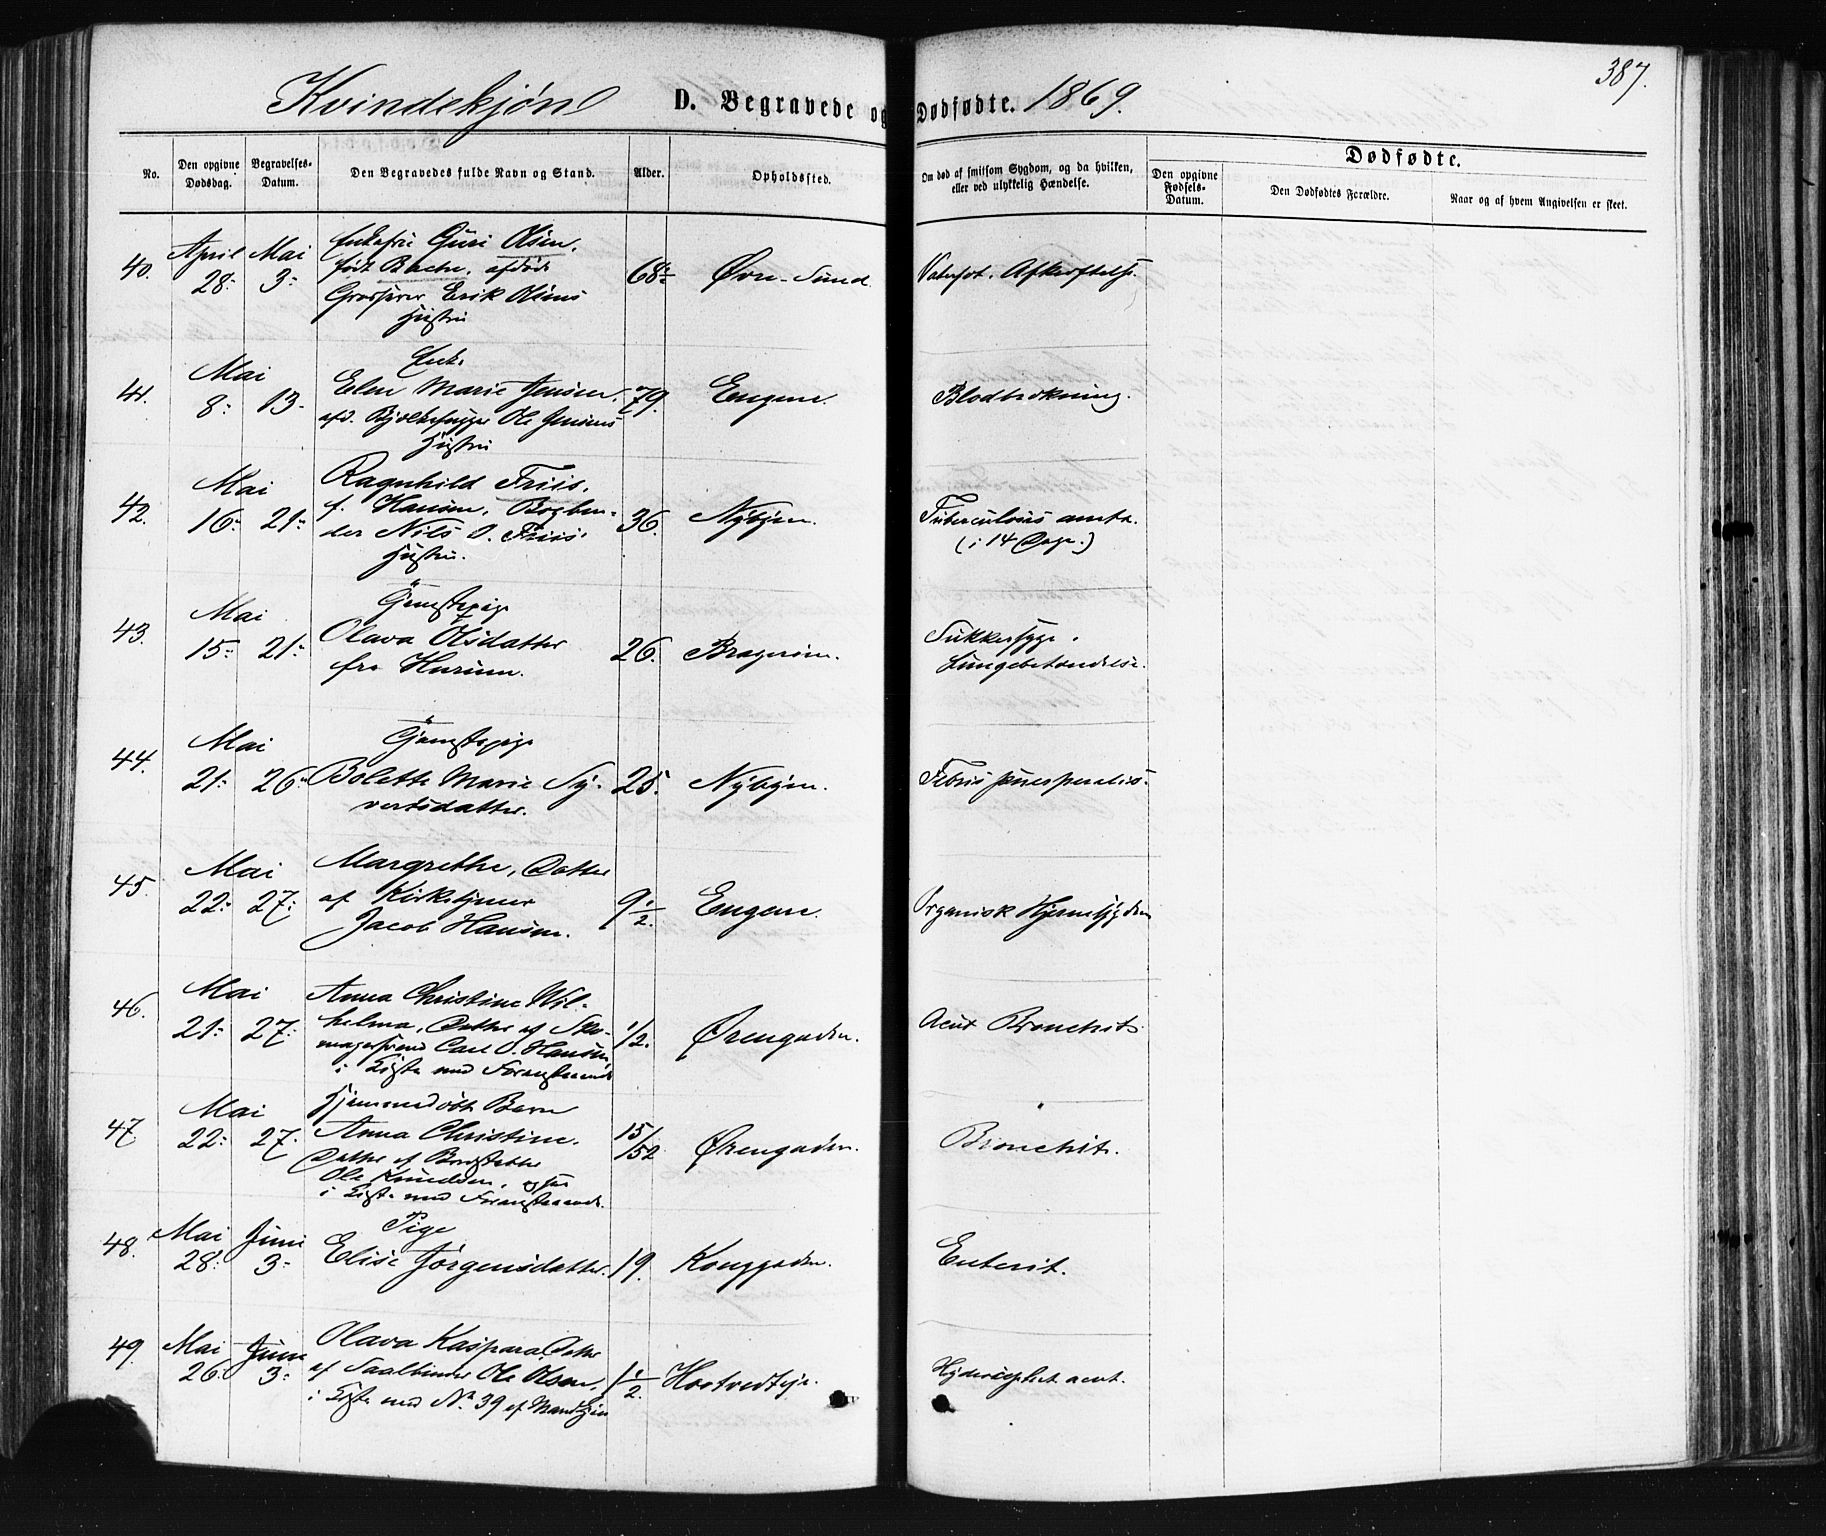 387.
Kvindekjøn D. Begravede og Dødfødte. 1869.
No. Den opgivne Dødsdag. Begravelses-Datum. Den Begravedes fulde Navn og Stand. Alder. Opholdssted. Om død af smitsom Sygdom, og da hvilken, eller ved ulykkelig Hændelse.
Dødfødte.
Den opgivne Fødsels-Datum. Den Dødfødtes Forældre. Naar og af hvem Angivelsen er skeet.
40. April 28: Mai 3: Enkefru Guri Olsen,
født Bache, afdøde
Grosserer Erik Olsens
Hustru
68 Øvre-Sund Vatersot. Afkræftelse.
41. Mai 8: 13. Enke
Elen Marie Jensen,
afd. Bjelkehugger Ole Jensens
Hustru
79. Engene. Blodbrækning.
42. Mai 16: 21: Ragnhild Friis,
f. Hansen, Bogbin-
der Nils O. Friis'
Hustru.
36. Nybyen. Tuberculosis acuta.
(i 14 Dage.)
43. Mai 15: 21: Tjenestepige
Olava Olsdatter
fra Hurum.
26. Bragernes. Sukkersyge.
Lungebetændelse.
44. Mai 21: 26: Tjenestepige
Bolette Marie Sy-
vertsdatter.
25. Nybyen. Febris puerperalis.
45. Mai 22: 27: Margrethe, Datter
af Kirketjener
Jacob Hansen.
9 1/2. Engene. Organisk Hjernesygdom
46. Mai 21: 27: Anna Christine Wil-
helma, Datter af Sko-
magersvend Carl O. Hansen,
i Kiste med Foranstaaende
1/2. Ørengaden. Acut Bronchit.
47. Mai 22: 27. Hjemmedøbt Barn
Anna Christine.
Datter af
Ole Knudsen, ogsaa
i Kiste med Foranstaaende.
15/52 Ørengaden. Bronchit.
48. Mai 28: Juni 3: Pige
Elise Jørgensdatter.
19. Konggaden. Enterit.
49. Mai 26. Juni 3: Olava Kaspara, Datter
af Ole Olsen,
i Kiste med No 39 af Mandkjøn
1 1/2. Hydrocephal. acut.